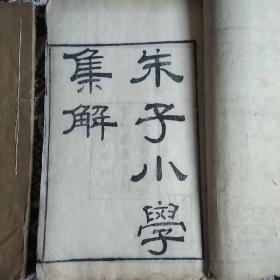 朱子小學
集解